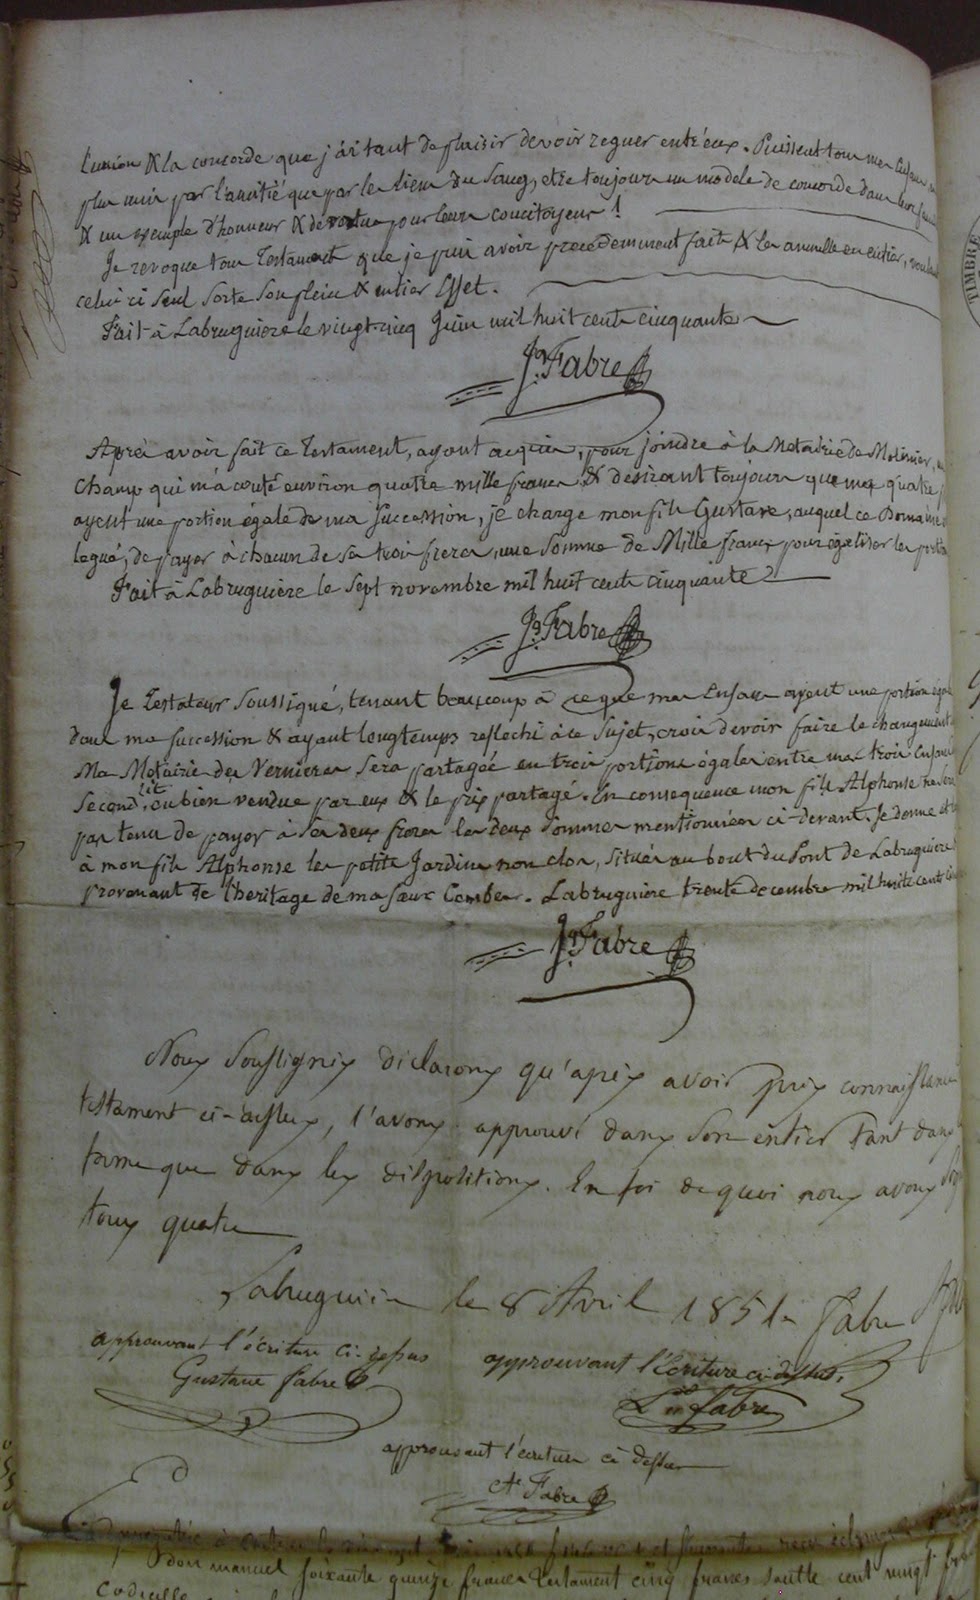 l'union & la concorde que j'ai tant de plaisir de voir regner entr'eux. Puissent tous mes Enfans
plus unis par l'amitié que par les liens du Sang, etre toujours un modele de concorde dans leur
& un exemple d'honneur & de vertu pour leurs concitoyens !
Je revoque tous Testament que je puis avoir precedemment fait & les annulle en entier,
celui ci seul sorte son plein & entier Effet.
Fait à Labruguiere le vingt-cinq Juin mil huit cents cinquante
Jq. Fabre
Après avoir fait ce Testament, ayant acquis, pour joindre à la Metairie de Molinier,
champ qui m'a couté environ quatre mille francs & désirant toujours que mes quatre
ayent une portion égale de ma succession, je charge mon fils Gustave, auquel ce Domaine
legué, de payer à chacun de ses trois freres une somme de Mille francs pour égaliser les
Fait à Labruguiere le sept novembre mil huit cents cinquante
Jq. Fabre
Je Testateur soussigné, tenant beaucoup à ce que mes Enfans ayent une portion
dans ma succession & ayant longtemps reflechi à ce sujet, crois devoir faire le changement
Ma Metairie des Vernieres sera partagée en trois portions égales entre mes trois Enfans
second lit, ou bien vendue par eux & le prix partagé. En consequence mon fils Alphonse ne sera
pas tenu de payer à ses deux freres les deux sommes mentionnées ci-devant. Je donne
à mon fils Alphonse les petits Jardins non clos, situés au bout du Pont de Labruguiere
provenant de l'heritage de ma sœur Combes. Labruguiere trente decembre mil huit cents
Jq. Fabre
Nous soussignés déclarons qu'après avoir pris connaissance
testament ci-dessus, l'avons approuvé dans son entier tant dans
forme que dans les dispositions. En foi de quoi nous avons
tous quatre
Labruguière le 8 Avril 1851. Fabre
approuvant l'écriture ci-dessus
Gustave Fabre
approuvant l'écriture ci-dessus,
Fabre
approuvant l'écriture ci dessus
Fabre
don manuel soixante quinze francs testament cinq francs
TIMBRE